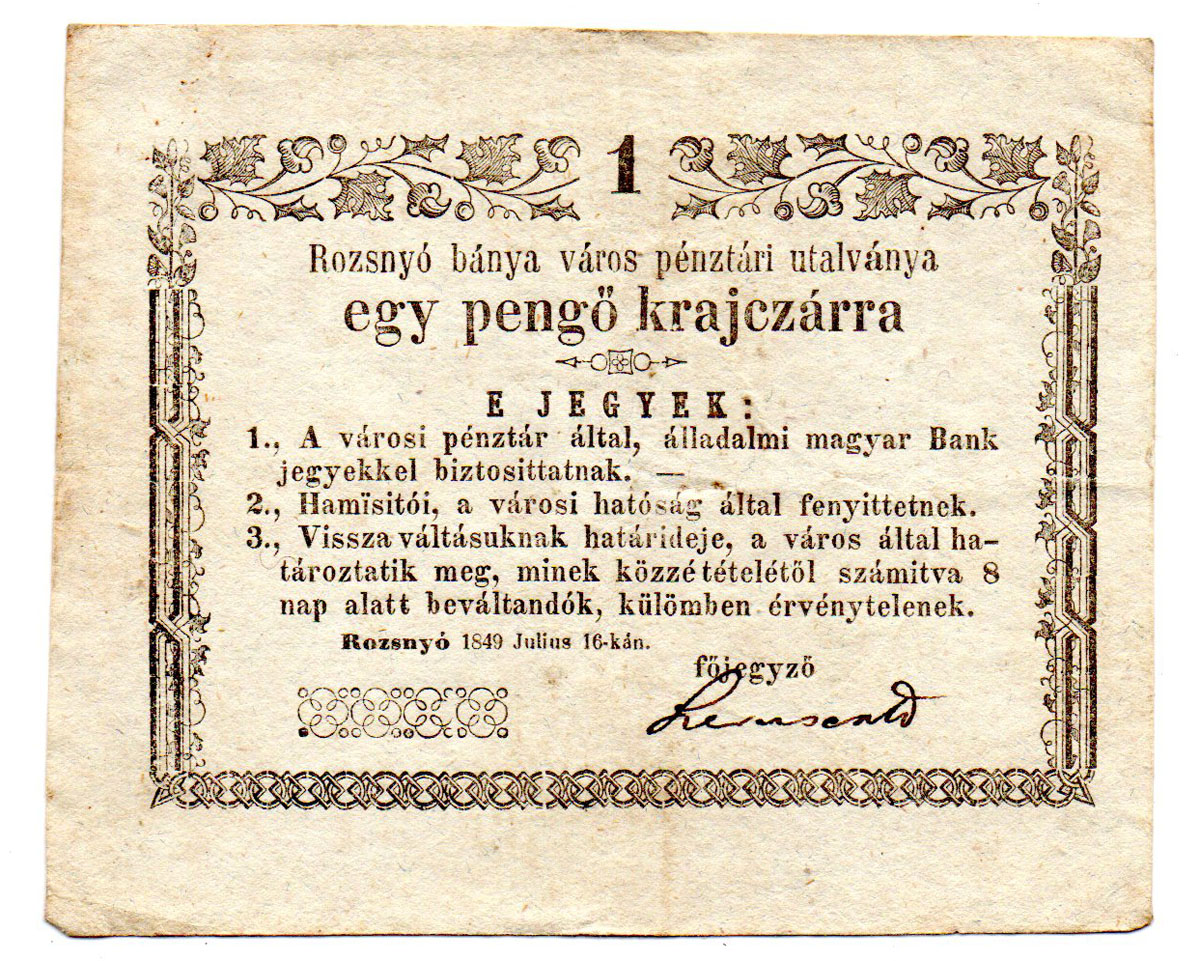 1
Rozsnyó bánya város pénztári utalványa
egy pengő krajczárra
E JEGYEK:
1., A városi pénztár által, álladalmi magyar Bank
jegyekkel biztosittatnak. —
2., Hamïsitói, a városi hatóság által fenyittetnek.
3., Vissza váltásuknak határideje, a város által ha-
tároztatik meg, minek közzé tételétöl számitva 8
nap alatt beváltandók, külömben érvénytelenek.
Rozsnyó 1849 Julius 16-kán.
főjegyző